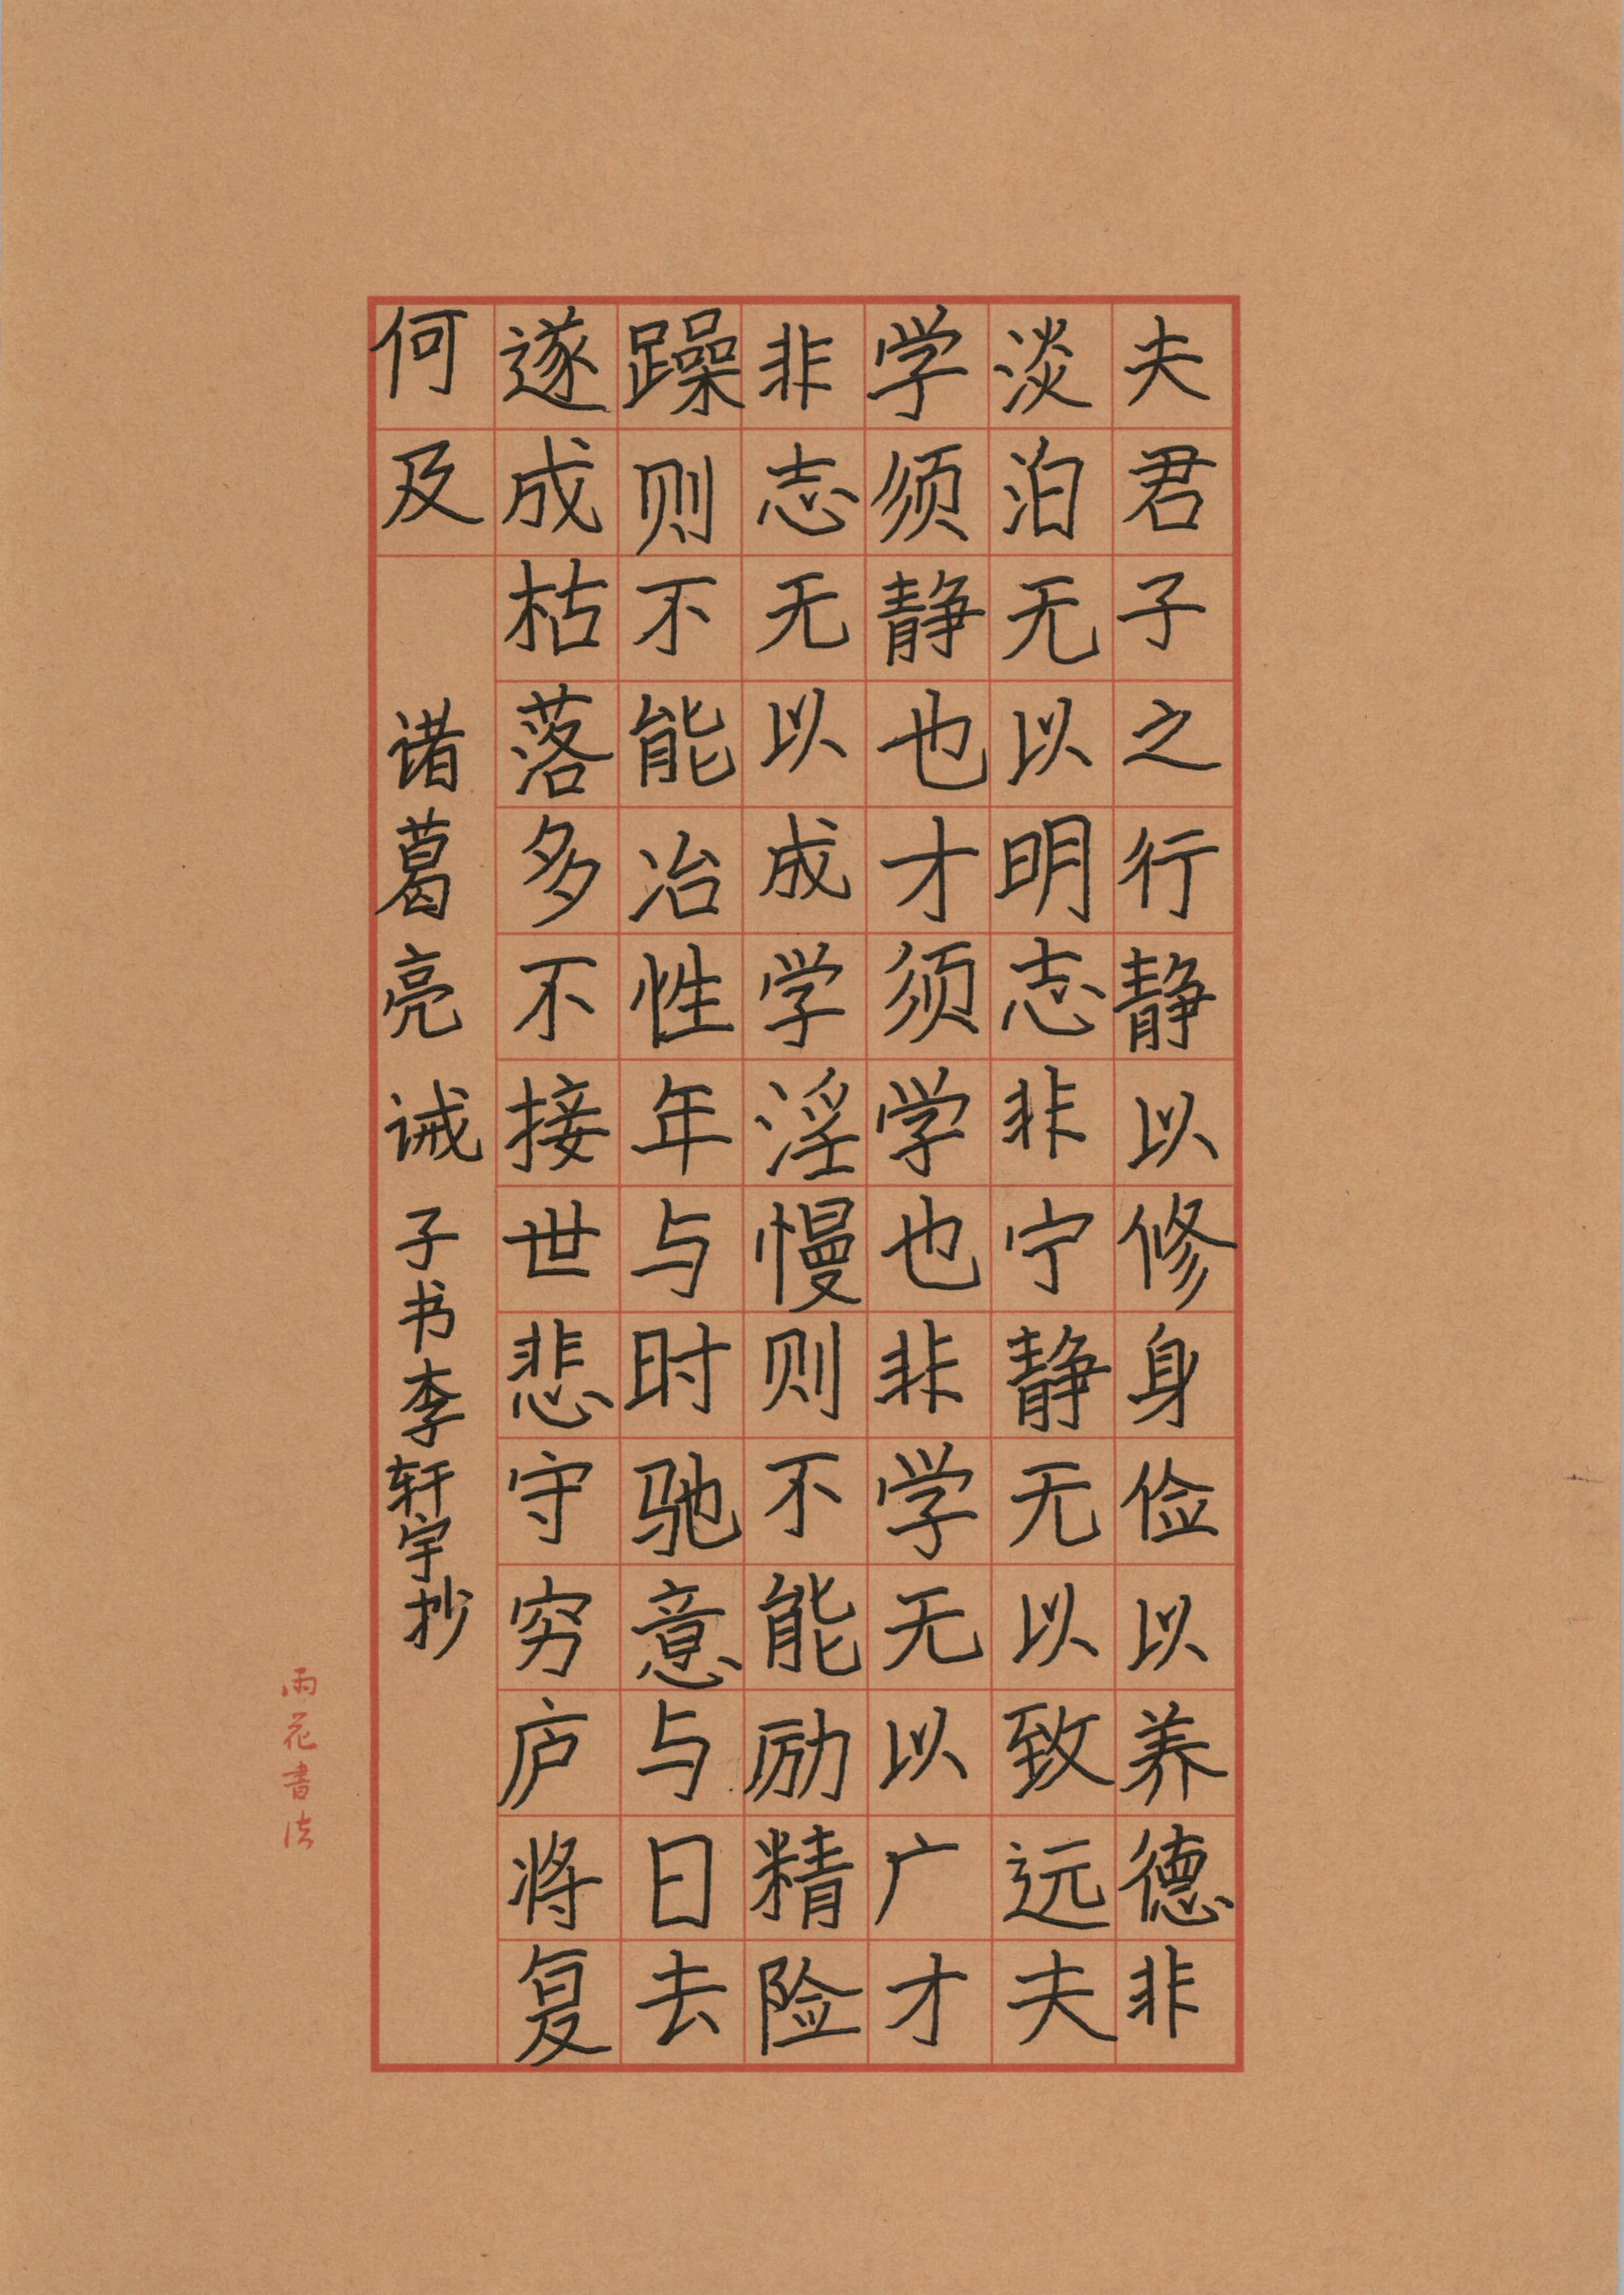 夫君子之行静以修身俭以养德非
淡泊无以明志非宁静无以致远夫
学须静也才须学也非学无以广才
非志无以成学淫慢则不能励精险
躁则不能冶性年与时驰意与日去
遂成枯落多不接世悲守穷庐将复
何及
诸葛亮诫子书李轩宇抄
雨花书法